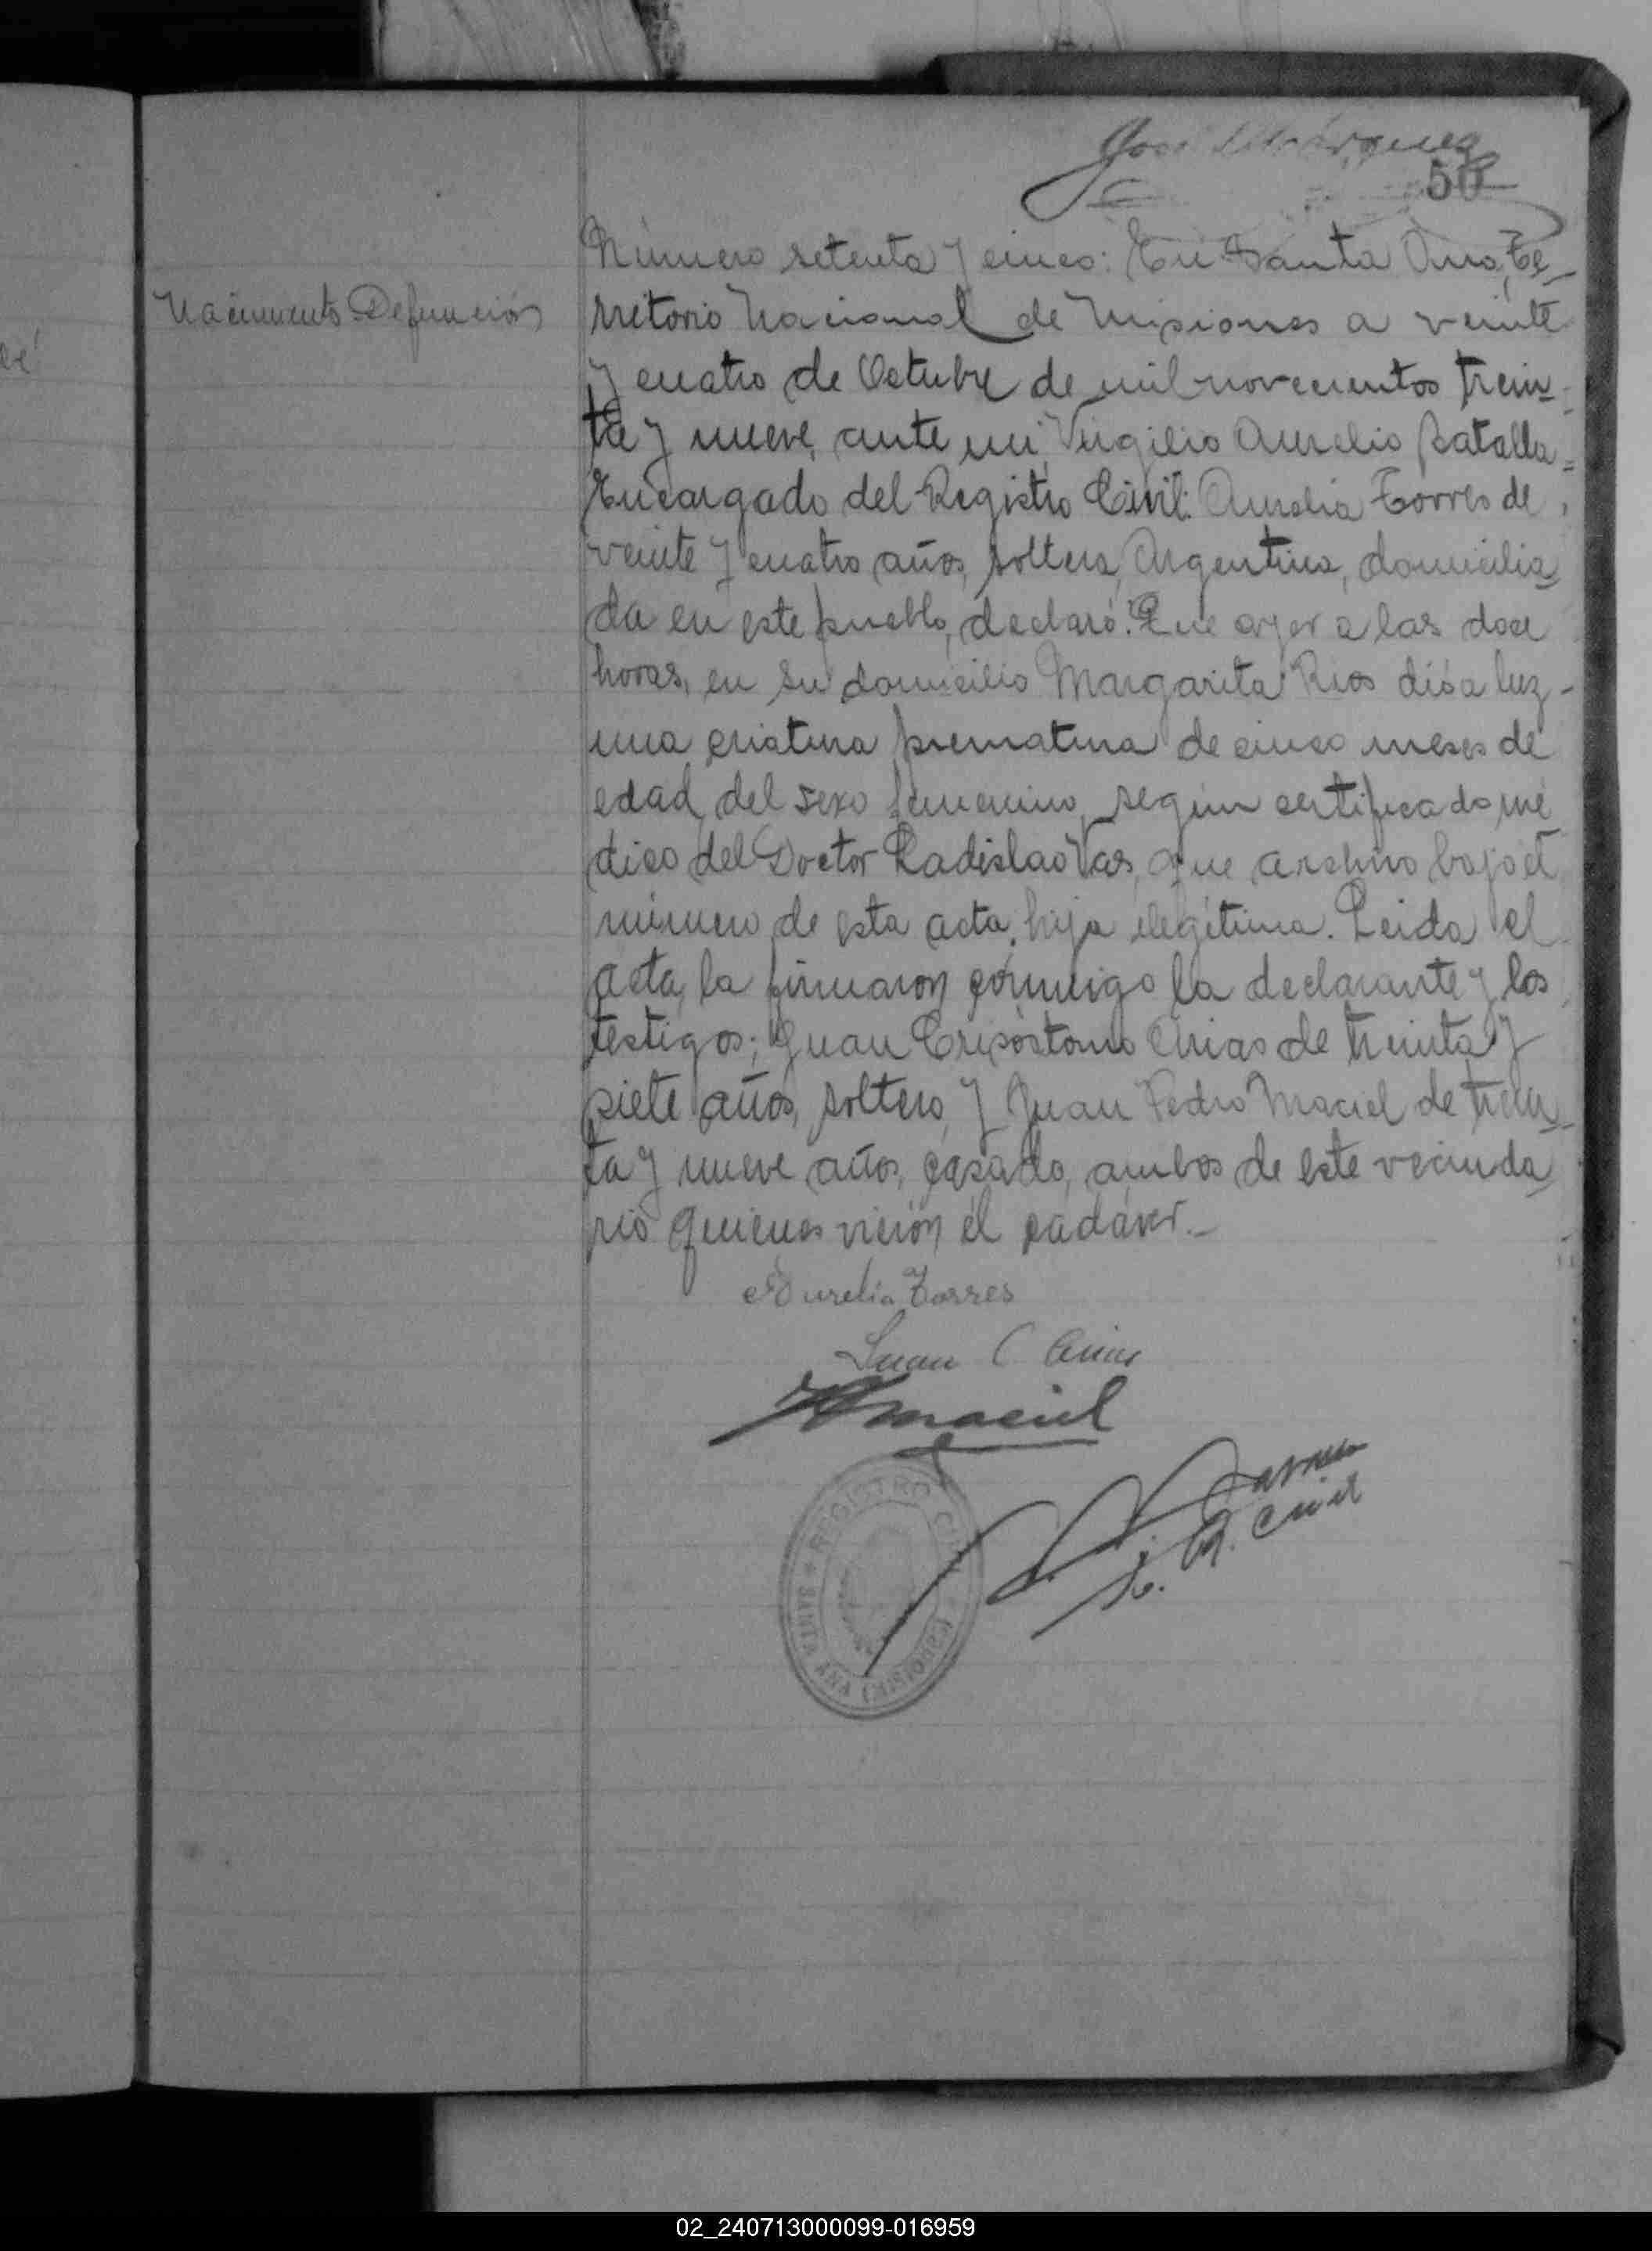 José Márquez
50
Número setenta y cinco: En Santa Ana, Te-
Nacimiento Defunción
rritorio Nacional de Misiones a veinte
y cuatro de Octubre de mil novecientos trein-
ta y nueve, ante mi, Virgilio Aurelio
Encargado del Registro Civil: Aurelia Torres de
veinte y cuatro años, soltera, Argentina, domicilia
da en este pueblo, declaró: Que ayer a las doce
horas, en su domicilio Margarita Rios dió a luz -
una criatura prematura de cinco meses de
edad, del sexo femenino, según certificado mé
dico del Doctor Ladislao Vas, que archivo bajo el
número de esta acta, hija ilegítima. Leida el
acta, la firmaron conmigo la declarante y los
testigos; Juan Crisóstomo Arias de treinta y
siete años, soltero, y Juan Pedro Maciel de trein-
ta y nueve años, casado, ambos de este vecinda
rio quienes vieron el cadáver.-
Aurelia Torres
Juan C Arias
Maciel
REGISTRO CIVIL
SANTA ANA (MISIONES)
02_240713000099-016959